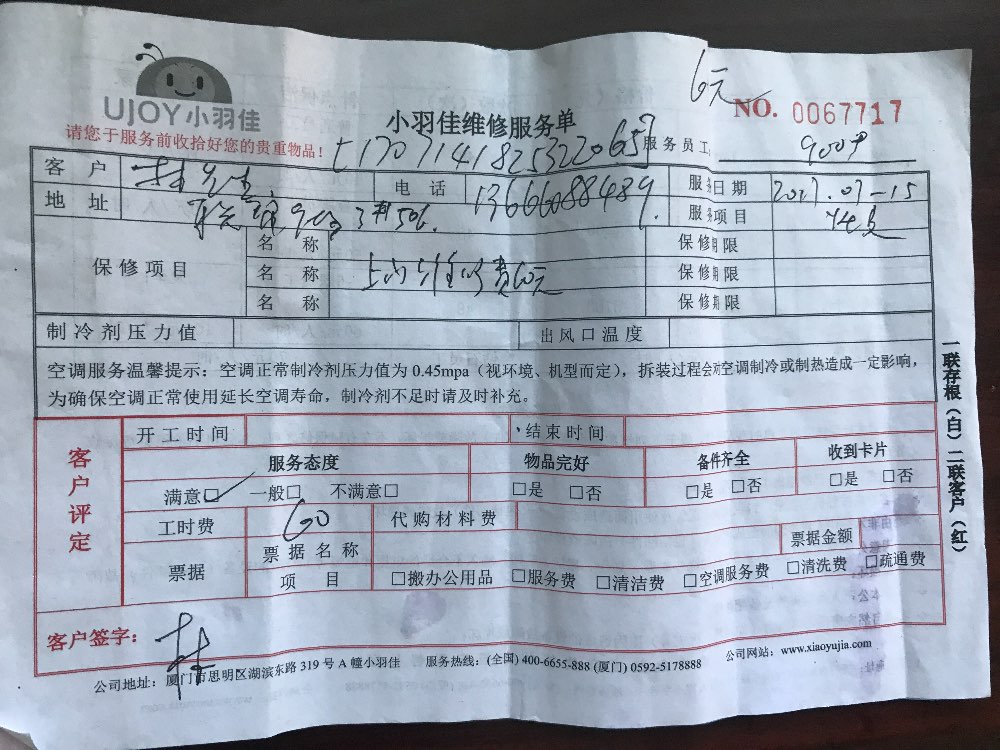 6元
UJOY小羽佳
小羽佳维修服务单
NO. 0067717
请您于服务前收拾好您的贵重物品!
服务员工
客户 林先生 电话 13666088489. 服务日期 2017.07-15
地址 服务项目
保修项目
名称 保修期限
名称 上门维修费60元 保修期限
名称 保修期限
制冷剂压力值 出风口温度
空调服务温馨提示:空调正常制冷剂压力值为0.45mpa(视环境、机型而定),拆装过程会对空调制冷或制热造成一定影响,
为确保空调正常使用延长空调寿命,制冷剂不足时请及时补充。
一联存根(白)二联客户(红)
客户评定
开工时间 结束时间
服务态度 物品完好 备件齐全 收到卡片
满意□✓ 一般□ 不满意□ □是 □否 □是 □否 □是 □否
工时费 60 代购材料费
票据 票据名称 票据金额
项目 □搬办公用品 □服务费 □清洁费 □空调服务费 □清洗费 □疏通费
客户签字: 林
公司地址:厦门市思明区湖滨东路319号A幢小羽佳 服务热线:(全国)400-6655-888 (厦门) 0592-5178888 公司网站:www.xiaoyujia.com